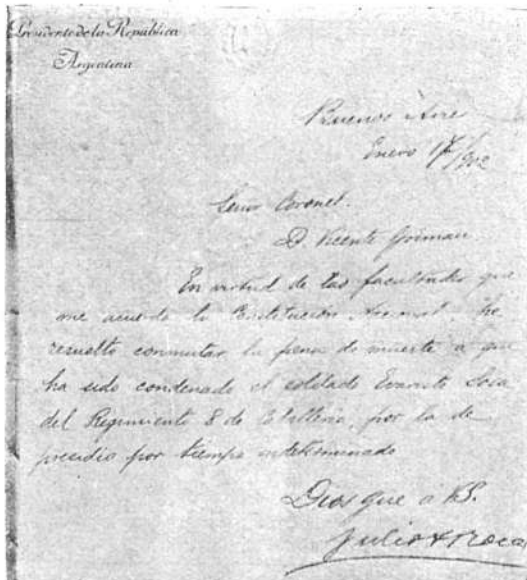 Presidente de la República
Argentina
Buenos Aire
Enero 1902
Señor Coronel.
D. Vicente
En virtud de las facultades que
me acuerda la Constitución he
resuelto conmutar la pena de muerte a que
ha sido condenado el soldado Evaristo Sosa
del Regimiento 8 de Caballeria, por la de
presidio por tiempo indeterminado
Dios gue a VS.
Julio A Roca